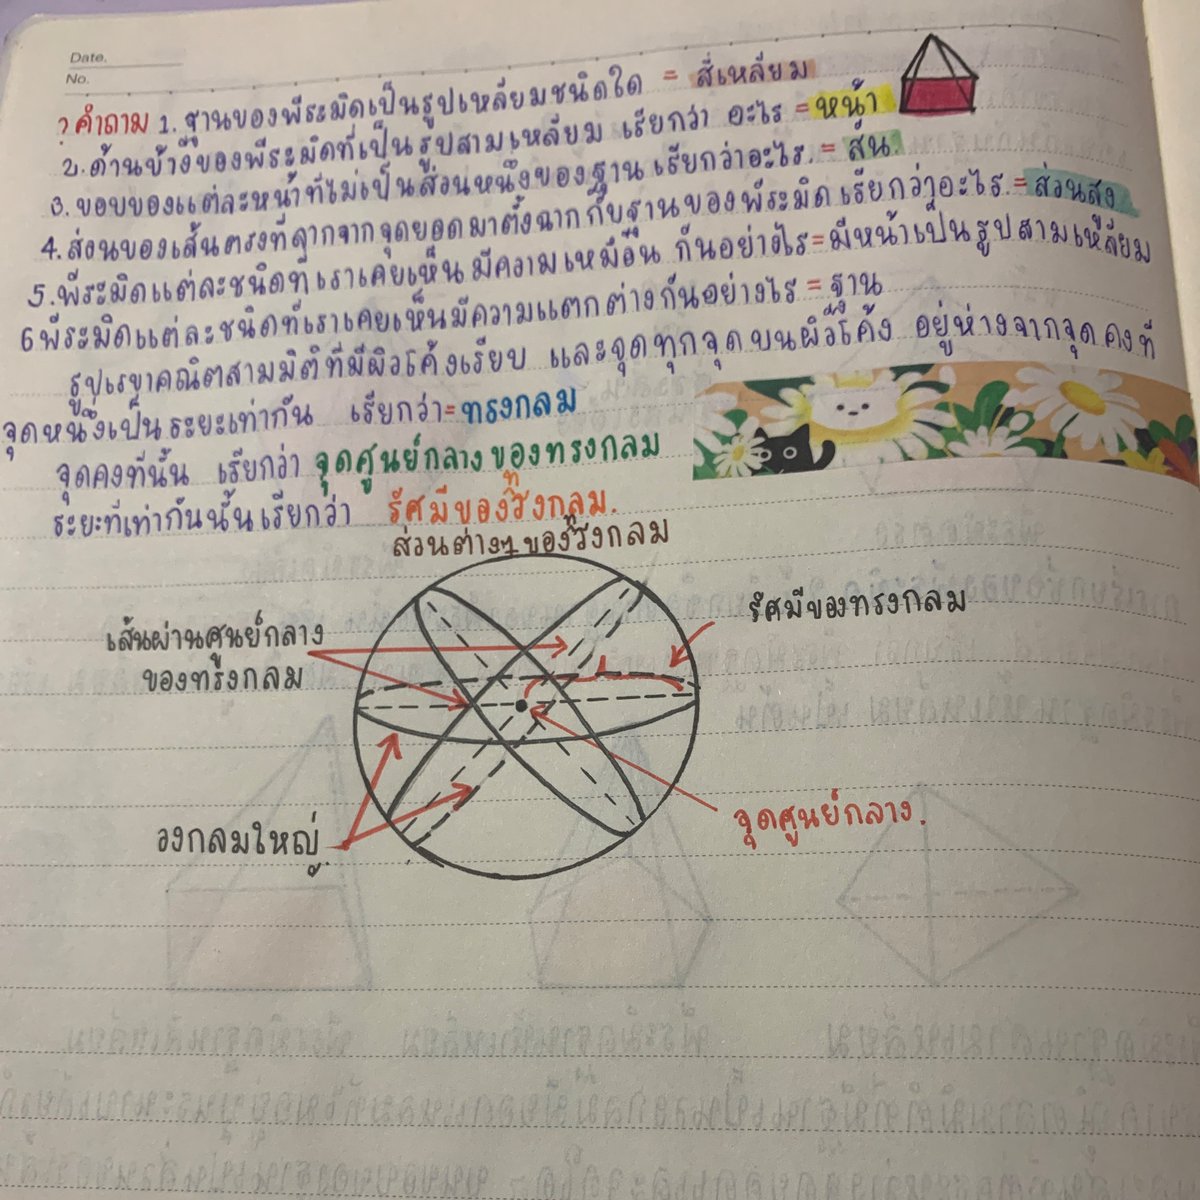 Date.
No.
? คำถาม 1. ฐานของพีระมิดเป็นรูปเหลี่ยมชนิดใด = สี่เหลี่ยม
2. ด้านข้างของพีระมิดที่เป็นรูปสามเหลี่ยม เรียกว่า อะไร = หน้า
3. ขอบของแต่ละหน้าที่ไม่เป็นส่วนหนึ่งของฐาน เรียกว่าอะไร = สัน
4. ส่วนของเส้นตรงที่ลากจากจุดยอดมาตั้งฉากกับฐานของพีระมิด เรียกว่าอะไร = ส่วนสูง
5. พีระมิดแต่ละชนิดที่เราเคยเห็น มีความเหมือน กันอย่างไร = มีหน้าเป็นรูปสามเหลี่ยม
6 พีระมิดแต่ละชนิดที่เราเคยเห็นมีความแตกต่างกันอย่างไร = ฐาน
รูปเรขาคณิตสามมิติที่มีผิวโค้งเรียบ และจุดทุกจุดบนผิวโค้ง อยู่ห่างจากจุดคงที่
จุดหนึ่งเป็นระยะเท่ากัน เรียกว่า = ทรงกลม
จุดคงที่นั้น เรียกว่า จุดศูนย์กลางของทรงกลม
ระยะที่เท่ากันนั้นเรียกว่า รัศมีของทรงกลม.
ส่วนต่างๆ ของทรงกลม
รัศมีของทรงกลม
เส้นผ่านศูนย์กลาง
ของทรงกลม
จุดศูนย์กลาง.
วงกลมใหญ่